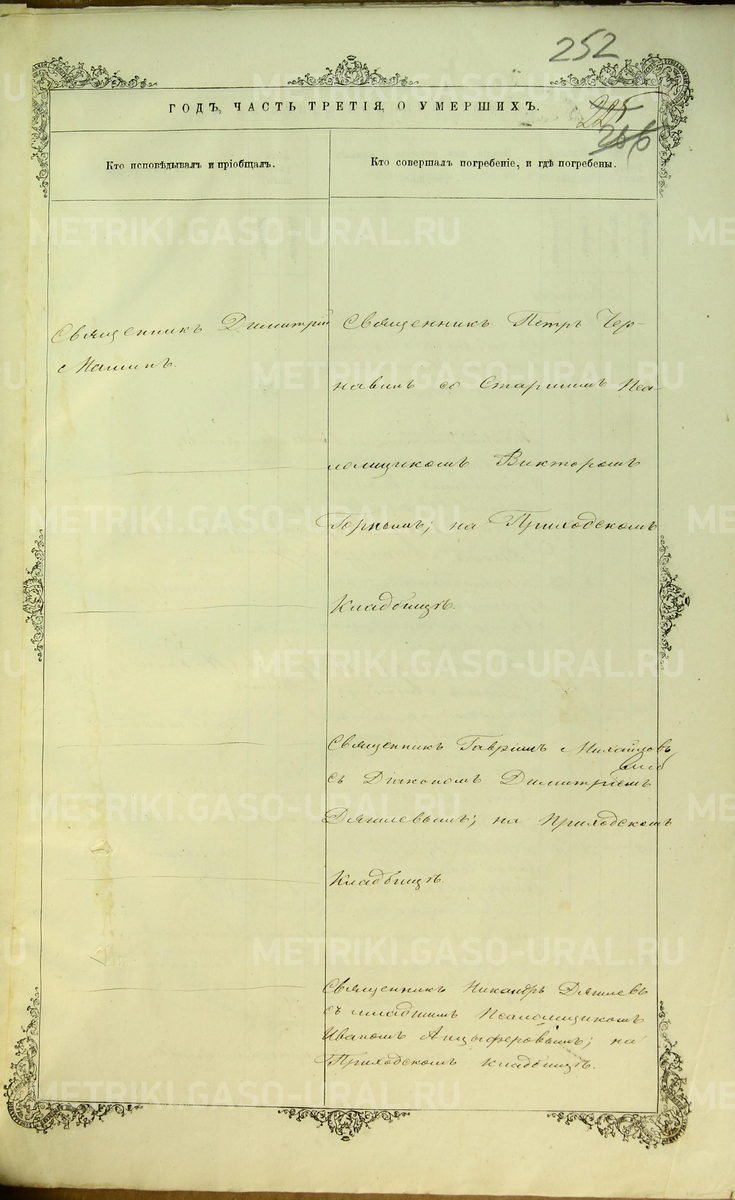 252
225
266
ГОДЪ, ЧАСТЬ ТРЕТІЯ, О УМЕРШИХЪ.
Кто исповѣдывалъ и пріобщалъ.
Кто совершалъ погребеніе, и гдѣ погребены.
Священникъ Димитрій
Священникъ Петръ Чер-
навинъ со Старшимъ Пса-
ломщикомъ Викторомъ
Горнымъ; на Приходскомъ
Кладбищѣ.
Священникъ Гавріилъ
съ Діакономъ Димитріемъ
Дягилевымъ; на Приходскомъ
Кладбищѣ.
Священникъ Никандръ Дягилевъ
съ младшимъ Псаломщикомъ
Иваномъ Анцыферовымъ; на
Приходскомъ кладбищѣ.
METRIKI.GASO-URAL.RU